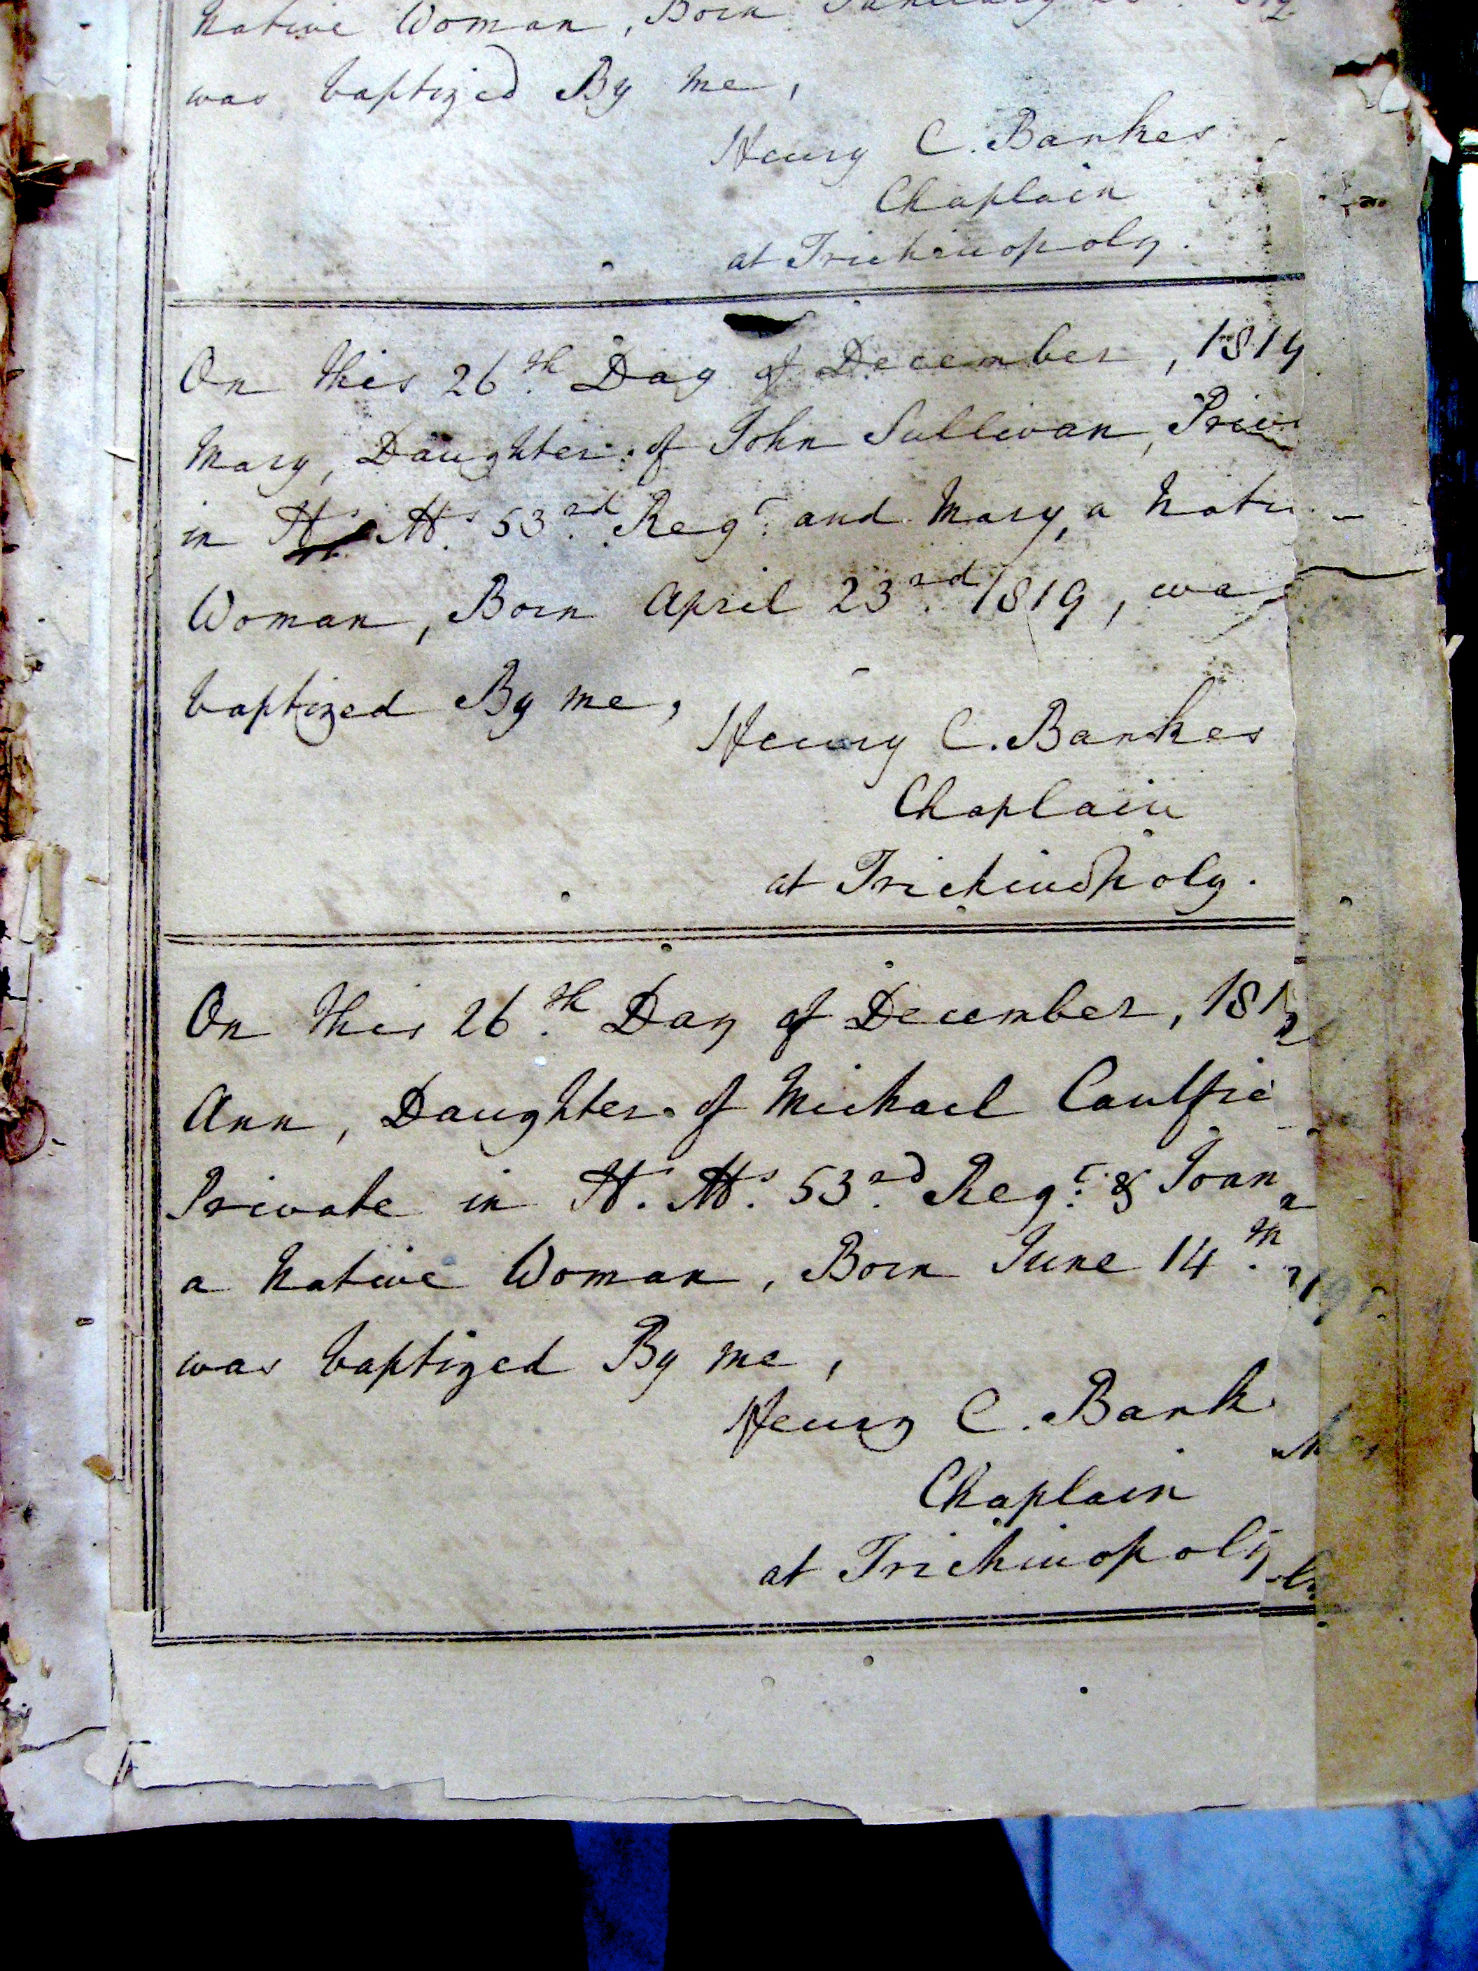 Native Woman, Born January
was baptized By me,
Henry C. Bankes
Chaplain
at Trichinopoly.
On this 26th. Day of December, 1819
Mary, Daughter of John Sullivan, Priv
in H. M's. 53rd. Regt. and Mary, a Nati
Woman, Born April 23rd. 1819, wa
baptized By me,
Henry C. Bankes
Chaplain
at Trichinopoly.
On this 26th. Day of December, 181
Ann, Daughter of Michael Caulfie
Private in H. M's. 53rd. Regt. & Joan
a Native Woman, Born June 14th.
was baptized By me,
Henry C. Bank
Chaplain
at Trichinopoly